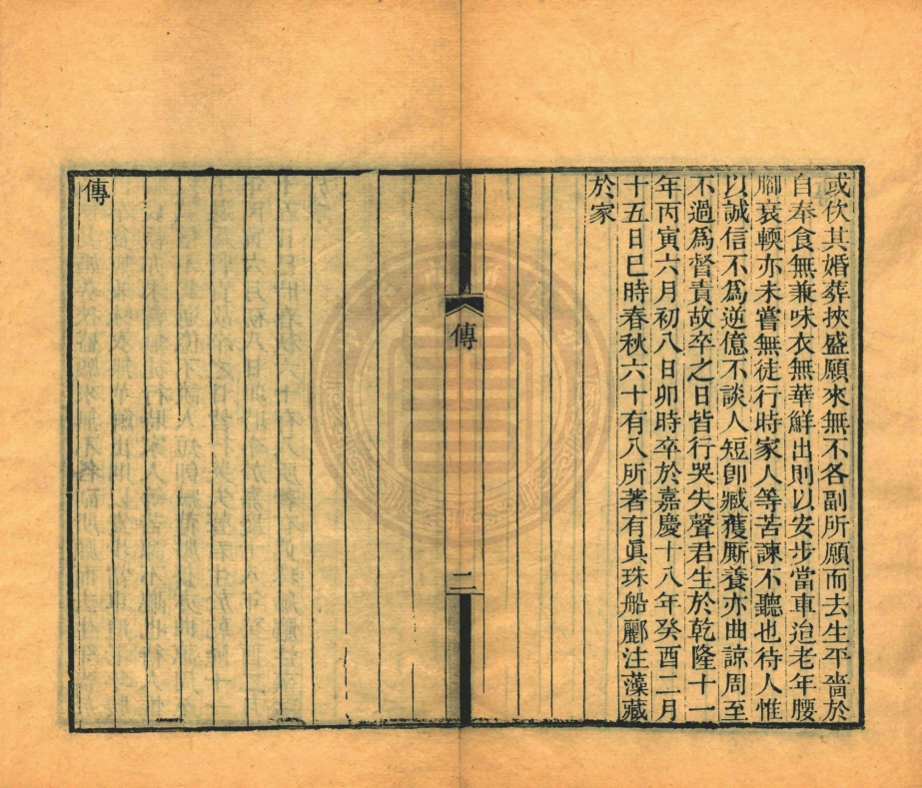 或佽其婚葬挾盛願來無不各副所願而去生平嗇於
自奉食無兼味衣無華鮮出則以安步當車迨老年腰
腳衰輭亦未嘗無徒行時家人等苦諫不聽也待人惟
以誠信不爲逆億不談人短卽臧獲厮養亦曲諒周至
不過爲督責故卒之日皆行哭失聲君生於乾隆十一
年丙寅六月初八日卯時卒於嘉慶十八年癸酉二月
十五日巳時春秋六十有八所著有眞珠船酈注藻藏
於家
傳
二
傳